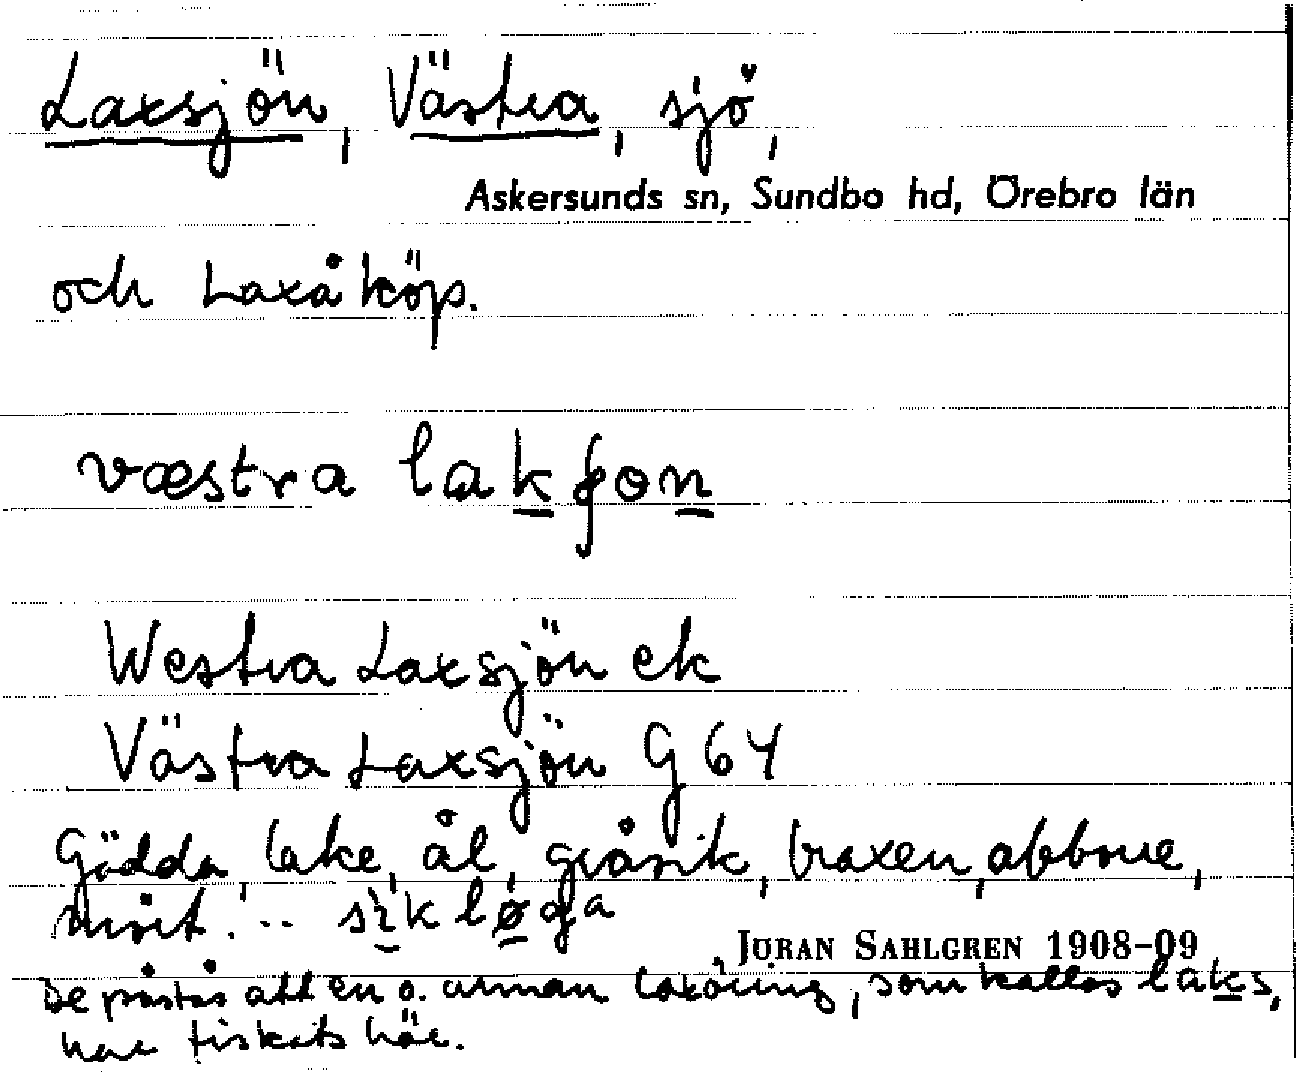 Laxsjön, Västra, sjö,
Askersunds sn, Sundbo hd, Örebro län
och Laxå köp.
væstra lakʃon
Westra Laxsjön ek
Västra Laxsjön G 64
Gädda, lake, ål, gråsik, braxen, abborre,
mört. .. sikløga
JÖRAN SAHLGREN 1908–09
De påstås att en o. annan laxöring, som kallas laks,
har fiskats här.